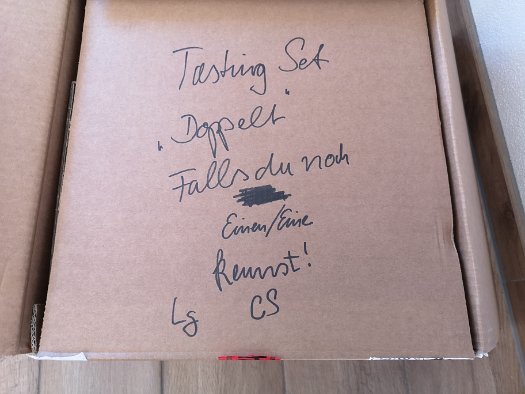 Tasting Set
„Doppelt"
Falls du noch
Einen/Eine
kennst!
Lg CS